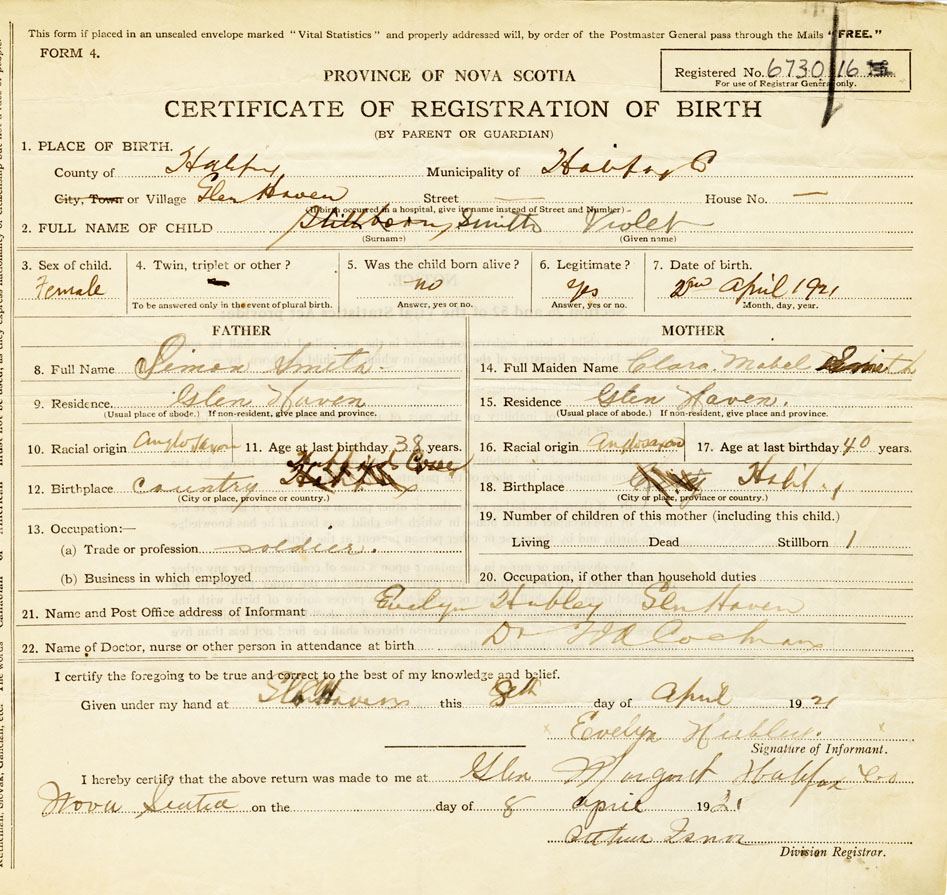 This form if placed in an unsealed envelope marked "Vital Statistics" and properly addressed will, by order of the Postmaster General pass through the Mails "FREE."
FORM 4.
Registered No. 6730 16
For use of Registrar General only.
PROVINCE OF NOVA SCOTIA
CERTIFICATE OF REGISTRATION OF BIRTH
(BY PARENT OR GUARDIAN)
1. PLACE OF BIRTH.
County of Halifax Municipality of Halifax C
City, Town or Village Glen Haven Street — House No. —
(If birth occurred in a hospital, give its name instead of Street and Number)
2. FULL NAME OF CHILD Stillborn Smith Violet
(Surname) (Given name)
3. Sex of child. 4. Twin, triplet or other? 5. Was the child born alive? 6. Legitimate? 7. Date of birth.
Female — no yes 2nd April 1921
To be answered only in the event of plural birth. Answer, yes or no. Answer, yes or no. Month, day, year.
FATHER MOTHER
8. Full Name Simon Smith 14. Full Maiden Name Clara Mabel Smith
9. Residence. Glen Haven 15. Residence Glen Haven.
(Usual place of abode.) If non-resident, give place and province. (Usual place of abode.) If non-resident, give place and province.
10. Racial origin Anglo Saxon 11. Age at last birthday 38 years. 16. Racial origin Anglosaxon 17. Age at last birthday 40 years.
12. Birthplace country Hubbards Cove 18. Birthplace Halif.
(City or place, province or country.) (City or place, province or country.)
13. Occupation:— 19. Number of children of this mother (including this child.)
(a) Trade or profession soldier. Living Dead Stillborn 1
(b) Business in which employed 20. Occupation, if other than household duties
21. Name and Post Office address of Informant Evelyn Hubley Glen Haven
22. Name of Doctor, nurse or other person in attendance at birth Dr Cochran
I certify the foregoing to be true and correct to the best of my knowledge and belief.
Given under my hand at Glen Haven this 8th day of April 1921
Evelyn Hubley.
Signature of Informant.
I hereby certify that the above return was made to me at Glen Margret Halifax Co
Nova Scotia on the day of 8 april 1921
Arthur Isnor
Division Registrar.